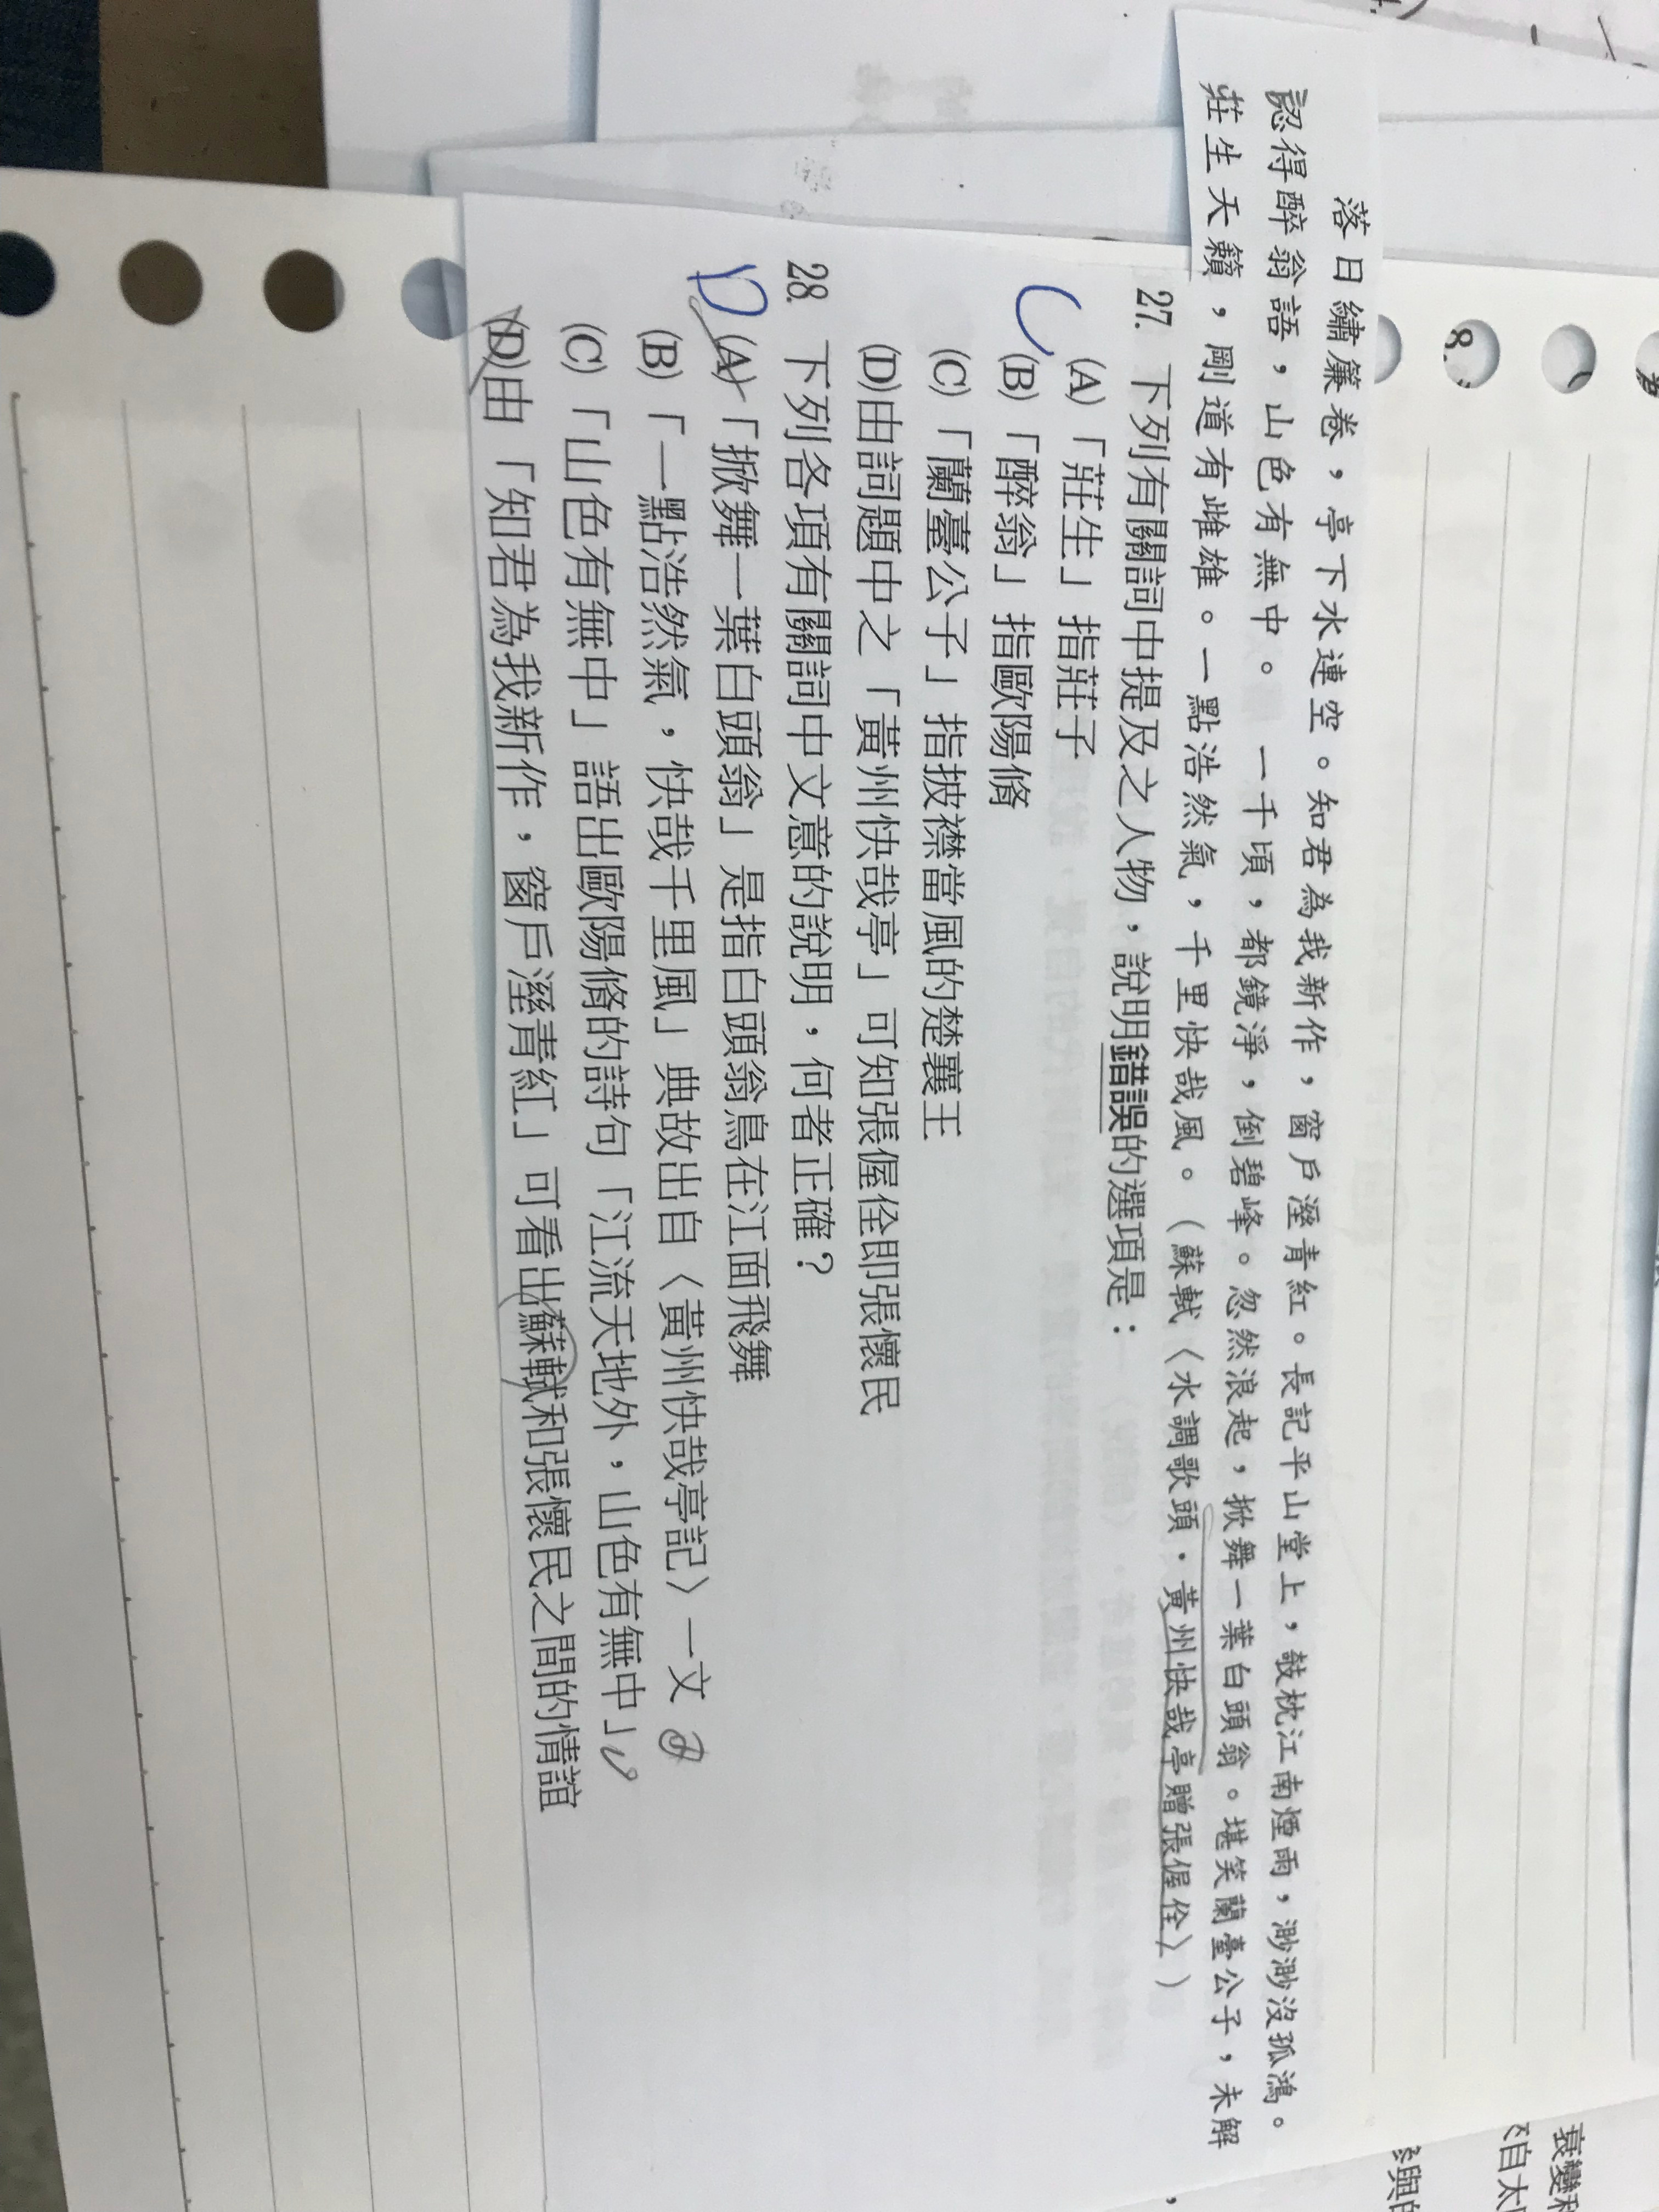 落日繡簾卷，亭下水連空。知君為我新作，窗戶溼青紅。長記平山堂上，攲枕江南煙雨，渺渺沒孤鴻。
認得醉翁語，山色有無中。　一千頃，都鏡淨，倒碧峰。忽然浪起，掀舞一葉白頭翁。堪笑蘭臺公子，未解
莊生天籟，剛道有雌雄。一點浩然氣，千里快哉風。（蘇軾〈水調歌頭．黃州快哉亭贈張偓佺〉）
27. 下列有關詞中提及之人物，說明錯誤的選項是：
(A)「莊生」指莊子
C (B)「醉翁」指歐陽脩
(C)「蘭臺公子」指披襟當風的楚襄王
(D)由詞題中之「黃州快哉亭」可知張偓佺即張懷民
28. 下列各項有關詞中文意的說明，何者正確？
D (A)「掀舞一葉白頭翁」是指白頭翁鳥在江面飛舞
(B)「一點浩然氣，快哉千里風」典故出自〈黃州快哉亭記〉一文
(C)「山色有無中」語出歐陽脩的詩句「江流天地外，山色有無中」
(D)由「知君為我新作，窗戶溼青紅」可看出蘇軾和張懷民之間的情誼
8.